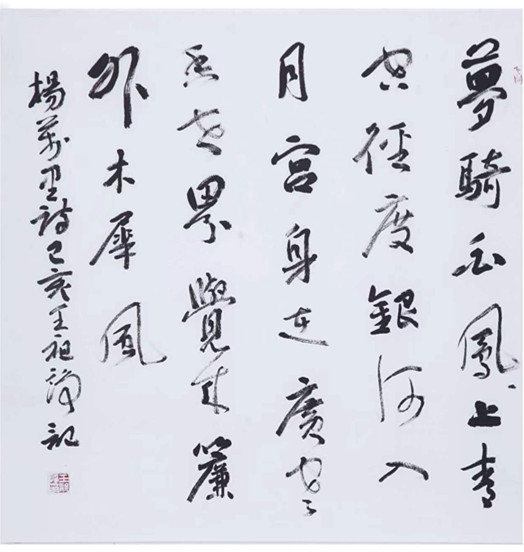 夢騎白鳳上青
空徑度銀河入
月宮身在廣寒
香世界覺來簾
外木犀風
楊萬里詩己亥王祖記